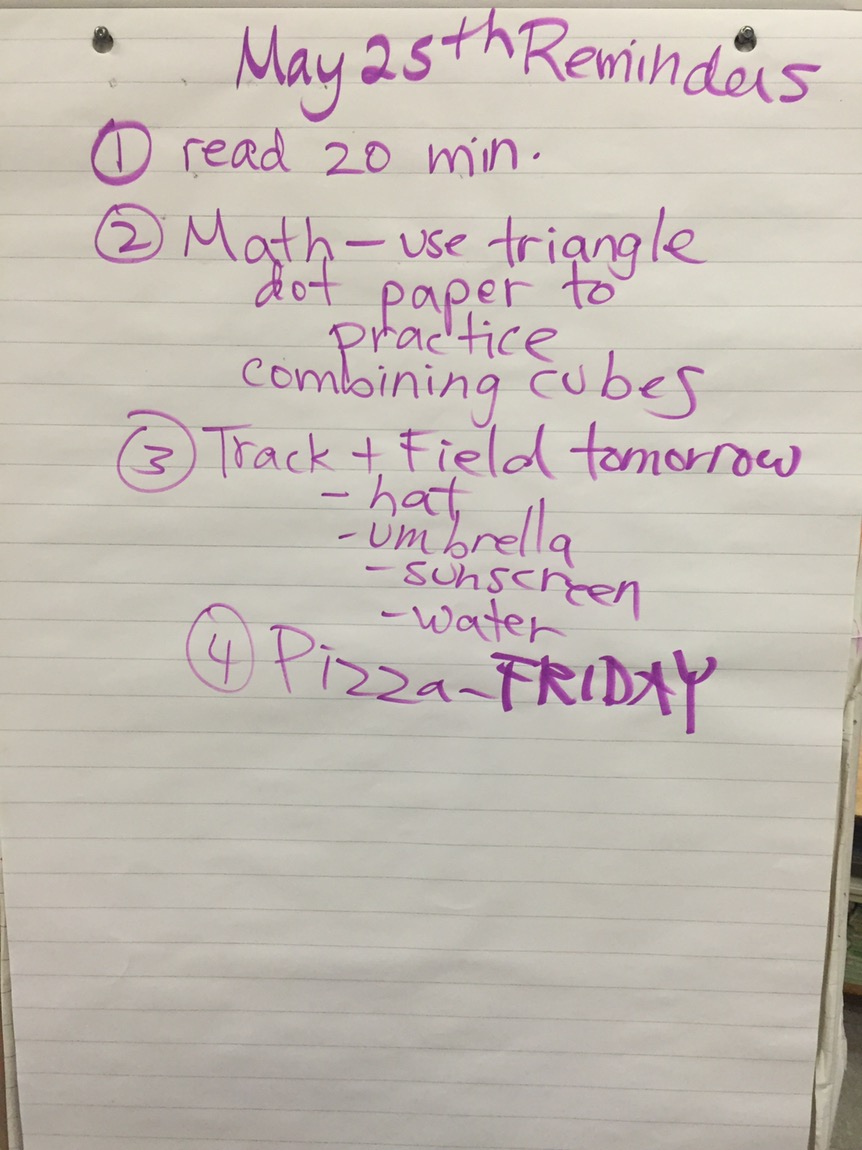 May 25th Reminders
① read 20 min.
② Math - use triangle
dot paper to
practice
combining cubes
③ Track + Field tomorrow
- hat
- umbrella
- sunscreen
- water
④ Pizza - FRIDAY